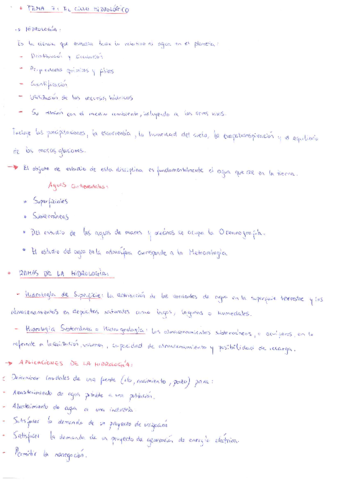 TEMA 7: EL CICLO HIDROLÓGICO
→ HIDROLOGÍA:
Es la ciencia que estudia todo lo relativo al agua en el planeta:
- Distribución y circulación
- Propiedades químicas y físicas
- Cuantificación
- Utilización de los recursos hídricos
- Su relación con el medio ambiente, incluyendo a los seres vivos.
Incluye las precipitaciones, la escorrentía, la humedad del suelo, la evapotranspiración y el equilibrio
de las masas glaciares.
→ El objeto de estudio de esta disciplina es fundamentalmente el agua que cae en la tierra.
Aguas continentales:
• Superficiales
• Subterráneas
• Del estudio de las aguas de mares y océanos se ocupa la Oceanografía.
• El estudio del agua en la atmósfera corresponde a la Meteorología
• RAMAS DE LA HIDROLOGÍA:
- Hidrología de Superficie: la distribución de las corrientes de agua en la superficie terrestre y los
almacenamientos en depósitos naturales como lagos, lagunas o humedales.
- Hidrología Subterránea o Hidrogeología: los almacenamientos subterráneos, o acuíferos, en lo
referente a localización, volumen, capacidad de almacenamiento y posibilidad de recarga.
→ APLICACIONES DE LA HIDROLOGÍA:
Determinar caudales de una fuente (río, nacimiento, pozo) para:
- Abastecimiento de agua potable a una población.
- Abastecimiento de agua a una industria
- Satisfacer la demanda de un proyecto de irrigación
- Satisfacer la demanda de un proyecto de generación de energía eléctrica
- Permitir la navegación.